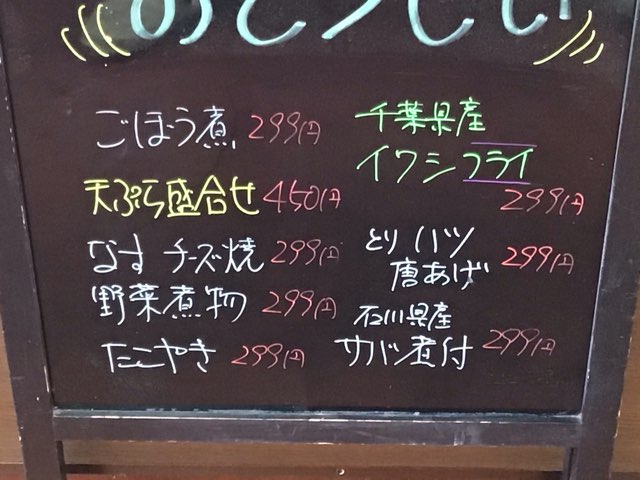 ごぼう煮 299円
天ぷら盛合せ 450円
なす チーズ焼 299円
野菜煮物 299円
たこやき 299円
千葉県産
イワシフライ
299円
とりハツ
唐あげ 299円
石川県産
サバ煮付 299円